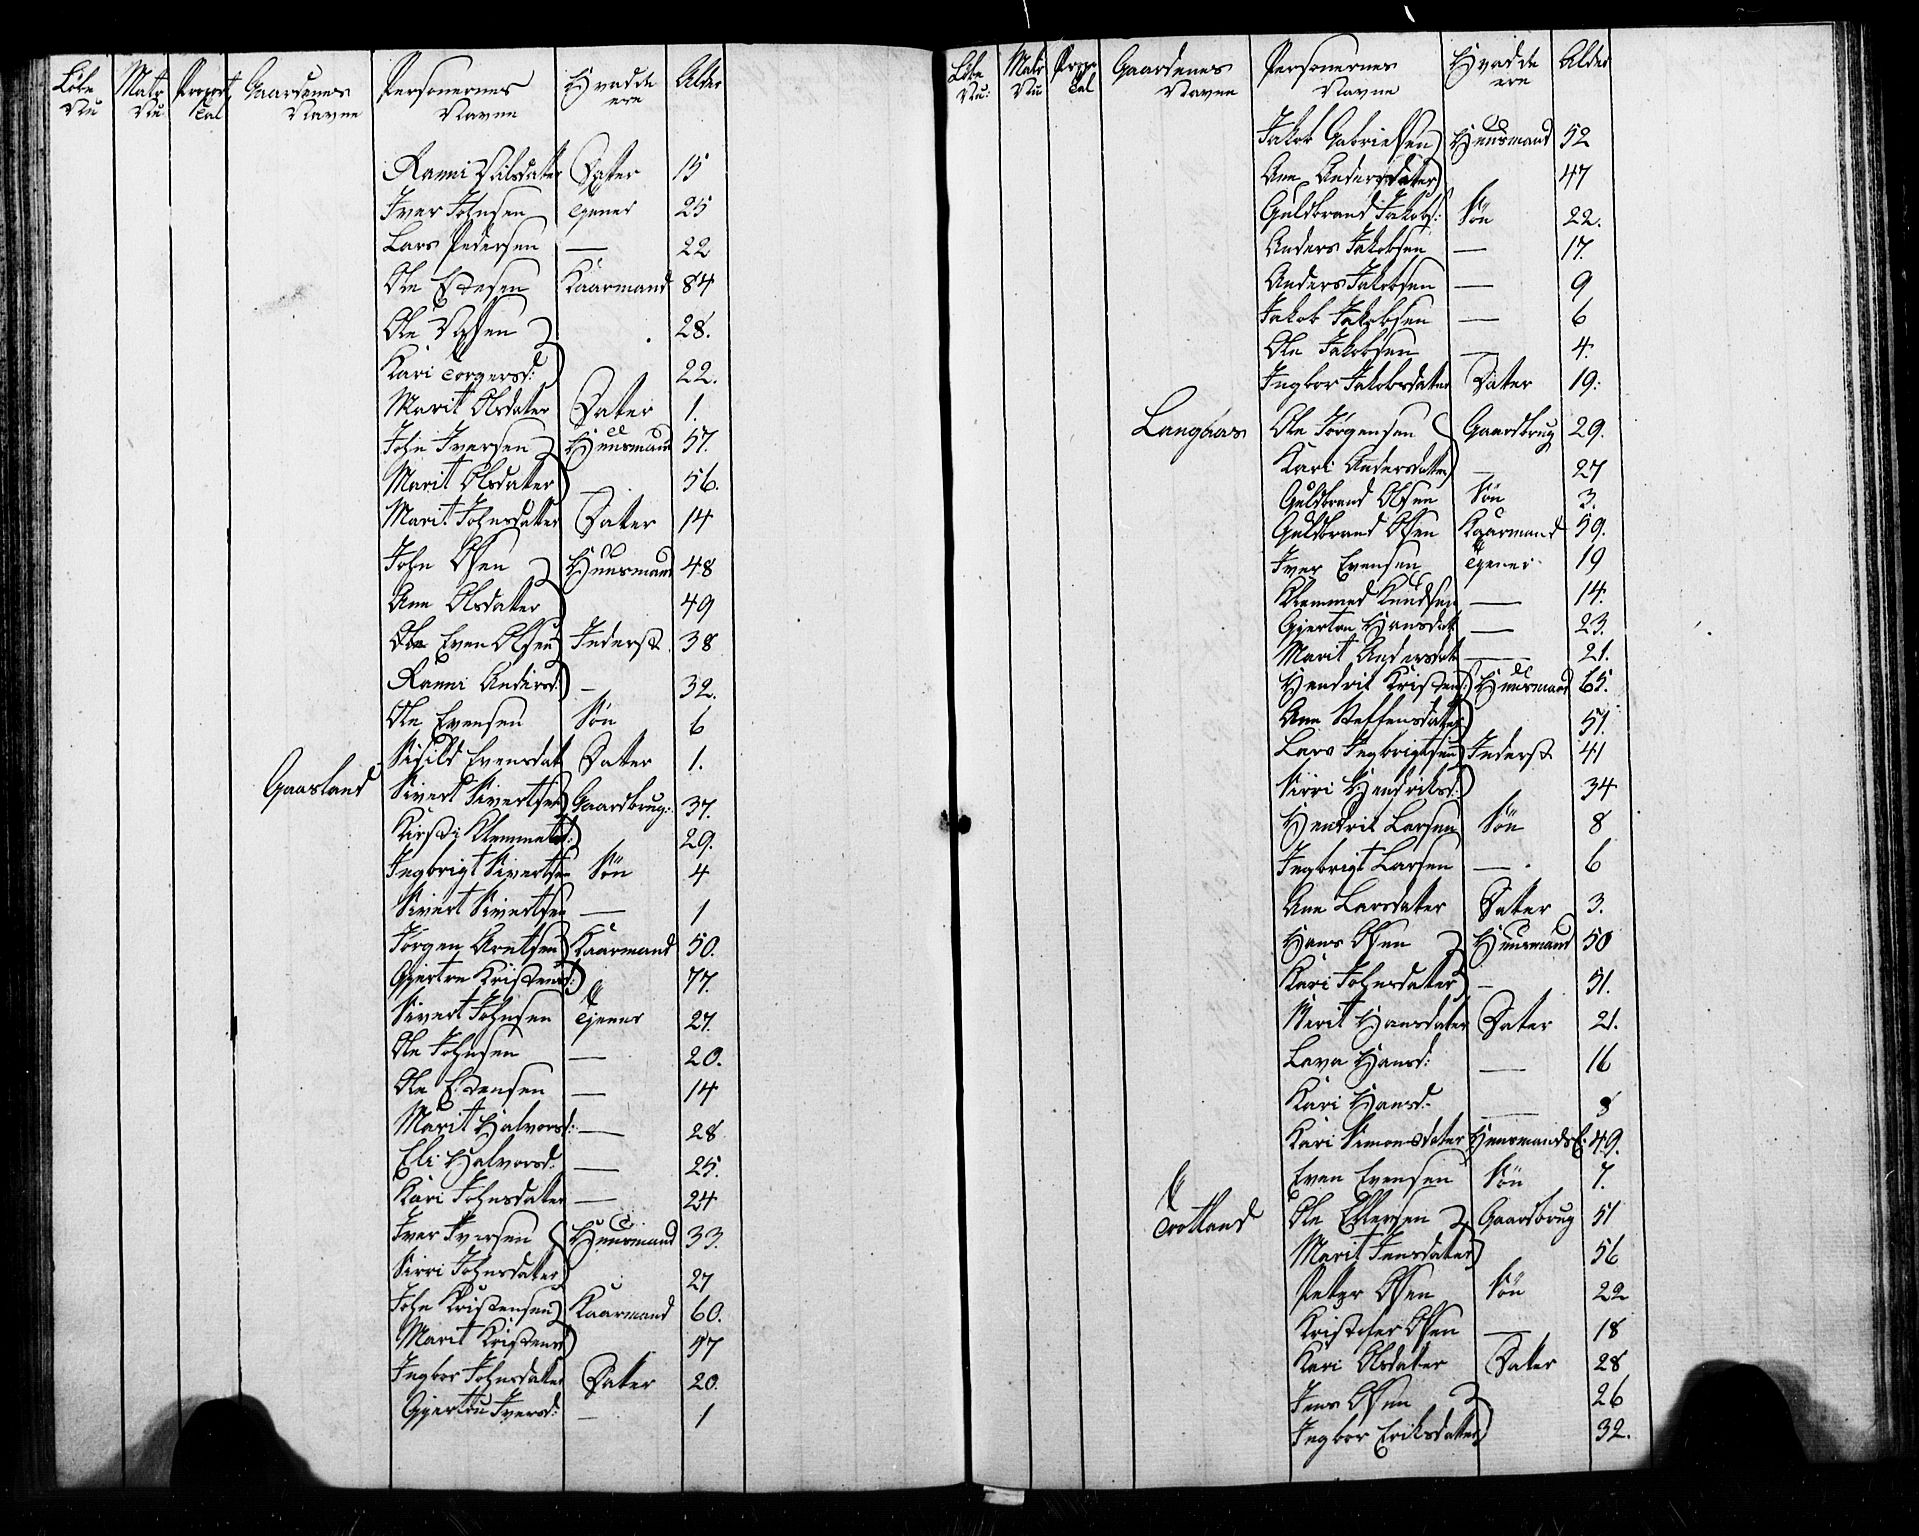 Löbe Nu Matr Nu Proport Tal Gaardenes Navne Personernes Navne Hvad de ere Alder
Ranni Nilsdatter Datter 15
Iver Johnsen Tjener 25
Lars Pedersen — 22
Ole Estesen Kaarmand 84
Ole Olsen 28.
Kari Torgersd: 22.
Marit Olsdatter Datter 1.
John Iversen Huusmand 57.
Marit Olsdatter 56.
Marit Johnsdatter Datter 14
John Olsen Huusmand 48
Ane Olsdatter 49
Even Olsen Inderst 38
Ranni Andersd: — 32.
Ole Evensen Sön 6
Sisild Evensdat Datter 1.
Gaasland Sivert Sivertsen Gaardbrug: 37.
Kirsti Klemmetsd: 29.
Ingbrigt Sivertsen Sön 4
Sivert Sivertsen — 1
Jörgen Arntsen Kaarmand 50.
Gjertru Kristensd: 77.
Sivert Johnsen Tjener 27.
Ole Johnsen — 20.
Ole Estensen — 14
Marit Halvorsd: — 28
Eli Halvorsd: — 25.
Kari Johnsdatter — 24
Iver Iversen Huusmand 33.
Sirri Johnsdatter 27
John Kristensen Kaarmand 60.
Marit Kristensd 57
Ingbor Johnsdatter Datter 20.
Gjertru Iversd: — 1
Löbe Nu: Matr Nu Propr Tal Gaardenes Navne Personernes Navne Hvad de ere Alder
Jakob Gabrielsen Huusmand 52
Ane Andersdatter 47
Guldbrand Jakobs: Sön 22.
Anders Jakobsen — 17.
Anders Jakobsen — 9
Jakob Jakobsen — 6
Ole Jakobsen — 4.
Ingbor Jakobsdatter Datter 19.
Langaas Ole Jörgensen Gaardbrug 29.
Kari Andersdatter — 27
Guldbrand Olsen Sön 3.
Guldbrand Olsen Kaarmand 59.
Iver Evensen Tjener 19
Klemmed Knudsen — 14.
Gjertru Hansdat — 23.
Marit Andersdat — 21.
Hendrik Kristens: Huusmand 65.
Ane Steffensdatter 51.
Lars Ingbrigtsen Inderst 41
Sirri Hendriksd: 34
Hendrik Larsen Sön 8
Ingbrigt Larsen — 6
Ane Larsdatter Datter 3.
Hans Olsen Huusmand 50
Kari Johnsdatter — 51.
Berit Hansdatter Datter 21.
Lava Hansd: — 16
Kari Hansd: — 8
Kari Simonsdatter Huusmands E: 49.
Even Evensen Sön 7.
Trotland Ole Ellersen Gaardbrug 51
Marit Jensdatter 56
Petter Olsen Sön 22
Kristofer Olsen — 18
Kari Olsdatter Datter 28
Jens Olsen 26
Ingbor Eriksdatter 32.